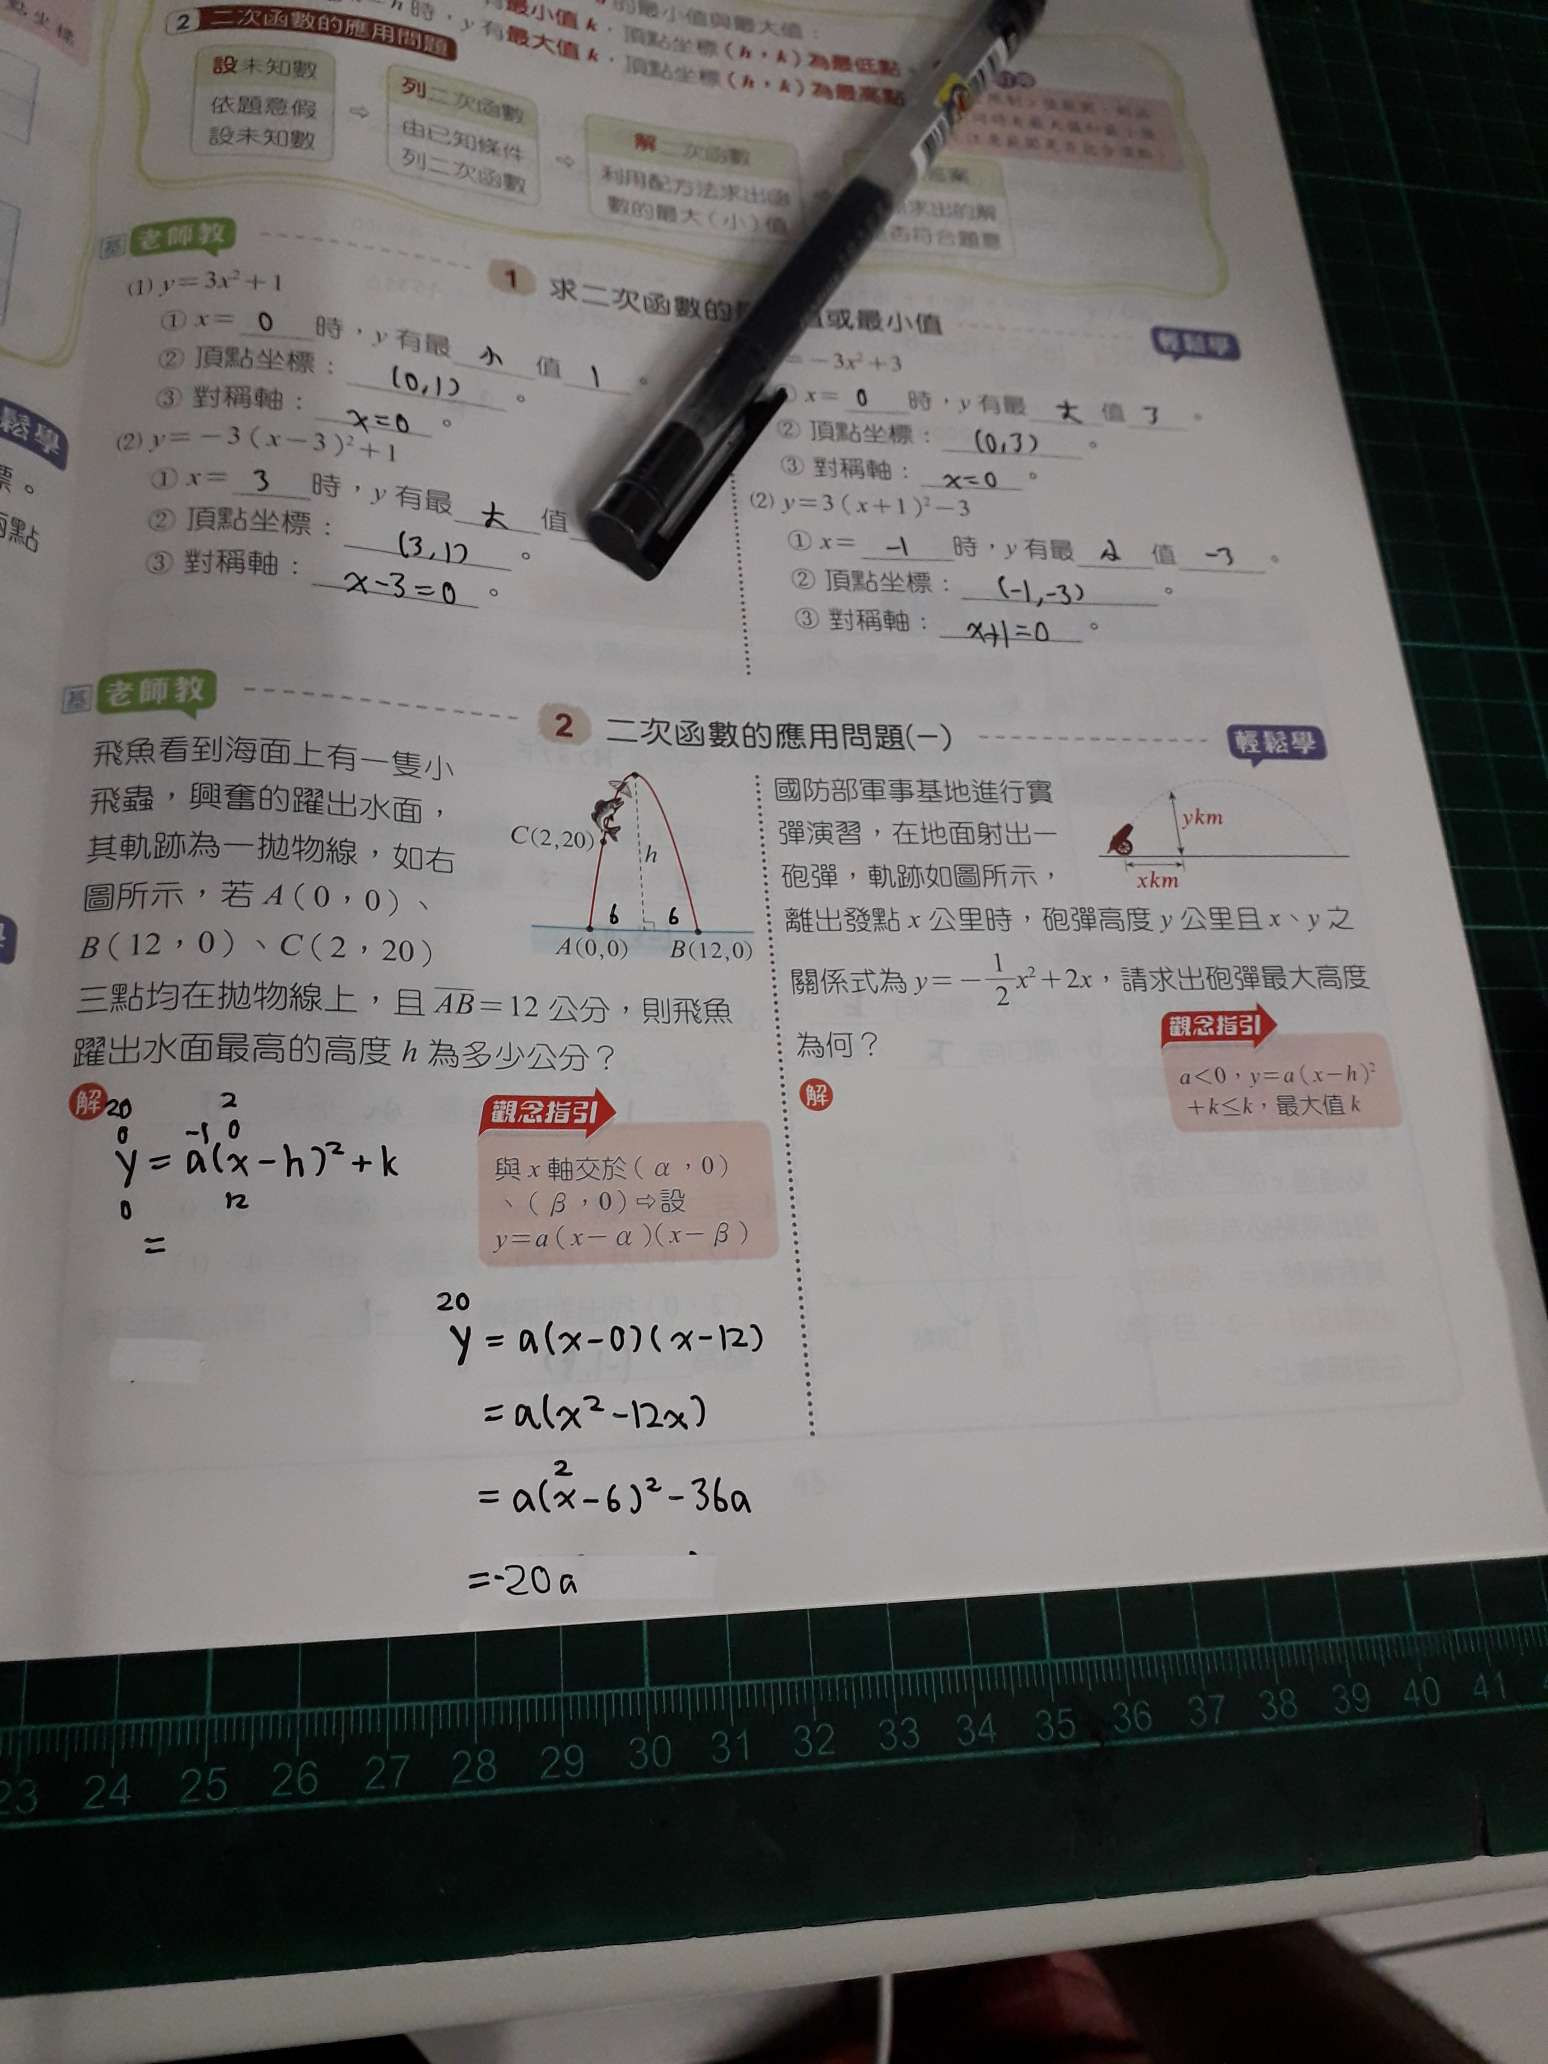 點坐標
時，y有最小值k，頂點坐標(h，k)為最低點
的最小值與最大值：
2 二次函數的應用問題
y有最大值k，頂點坐標(h，k)為最高點
設未知數
依題意假
設未知數
⇨
列二次函數
由已知條件
列二次函數
⇨
解二次函數
利用配方法求出函
數的最大（小）值
求出的解
否符合題意
鬆學
基 老師教
1 求二次函數的
值或最小值
輕鬆學
(1) y=3x²+1
① x= 0 時，y有最 小 值 1 。
② 頂點坐標： (0,1) 。
③ 對稱軸： x=0 。
(2) y=－3（x－3）²+1
① x= 3 時，y有最 大 值
② 頂點坐標： (3,1) 。
③ 對稱軸： x-3=0 。
=－3x²+3
x= 0 時，y有最 大 值 3 。
② 頂點坐標： (0,3) 。
③ 對稱軸： x=0 。
(2) y=3（x+1）²－3
① x= -1 時，y有最 小 值 -3 。
② 頂點坐標： (-1,-3) 。
③ 對稱軸： x+1=0 。
基 老師教
2 二次函數的應用問題(一)
輕鬆學
飛魚看到海面上有一隻小
飛蟲，興奮的躍出水面，
其軌跡為一拋物線，如右
圖所示，若A（0，0）、
B（12，0）、C（2，20）
三點均在拋物線上，且AB=12公分，則飛魚
躍出水面最高的高度h為多少公分？
C(2,20)
h
6 6
A(0,0) B(12,0)
解
20 2
0 -1 0
y = a(x-h)²+k
0 12
=
觀念指引
與x軸交於（α，0）
、（β，0）⇨設
y=a（x－α）（x－β）
20
y = a(x-0)(x-12)
= a(x²-12x)
2
= a(x-6)²-36a
=-20a
國防部軍事基地進行實
彈演習，在地面射出一
砲彈，軌跡如圖所示，
離出發點x公里時，砲彈高度y公里且x、y之
關係式為y=－1/2x²+2x，請求出砲彈最大高度
為何？
ykm
xkm
解
觀念指引
a<0，y=a（x－h）²
+k≤k，最大值k
23 24 25 26 27 28 29 30 31 32 33 34 35 36 37 38 39 40 41